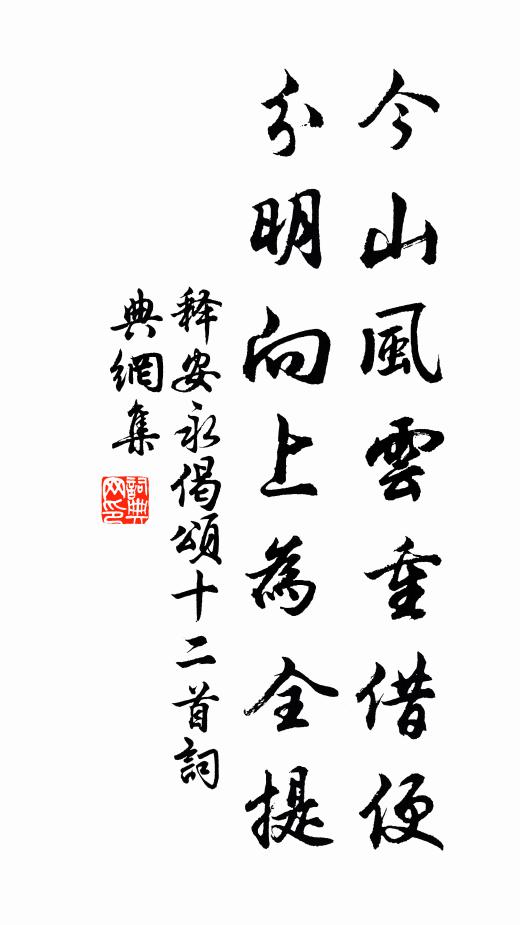 今山風雲重借便
分明向上為全提
释安永偈頌十二首詞
典網集
詞典
网印